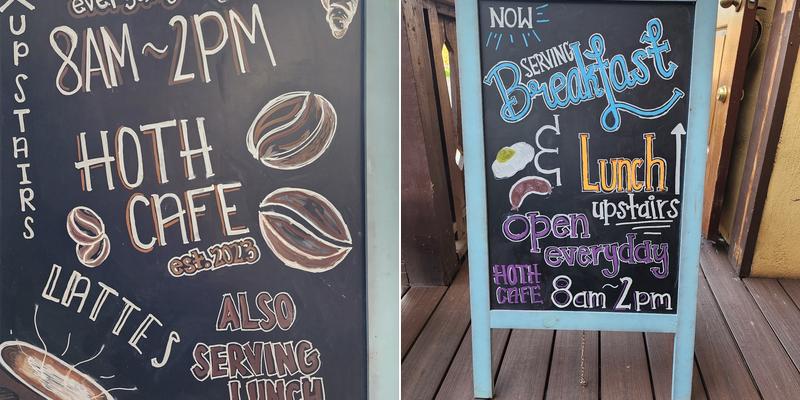 everyday
8AM~2PM
UPSTAIRS
HOTH
CAFE
est. 2023
LATTES
ALSO
SERVING
LUNCH
NOW
SERVING
Breakfast
&
Lunch
upstairs
open
everyday
HOTH
CAFE
8am~2pm